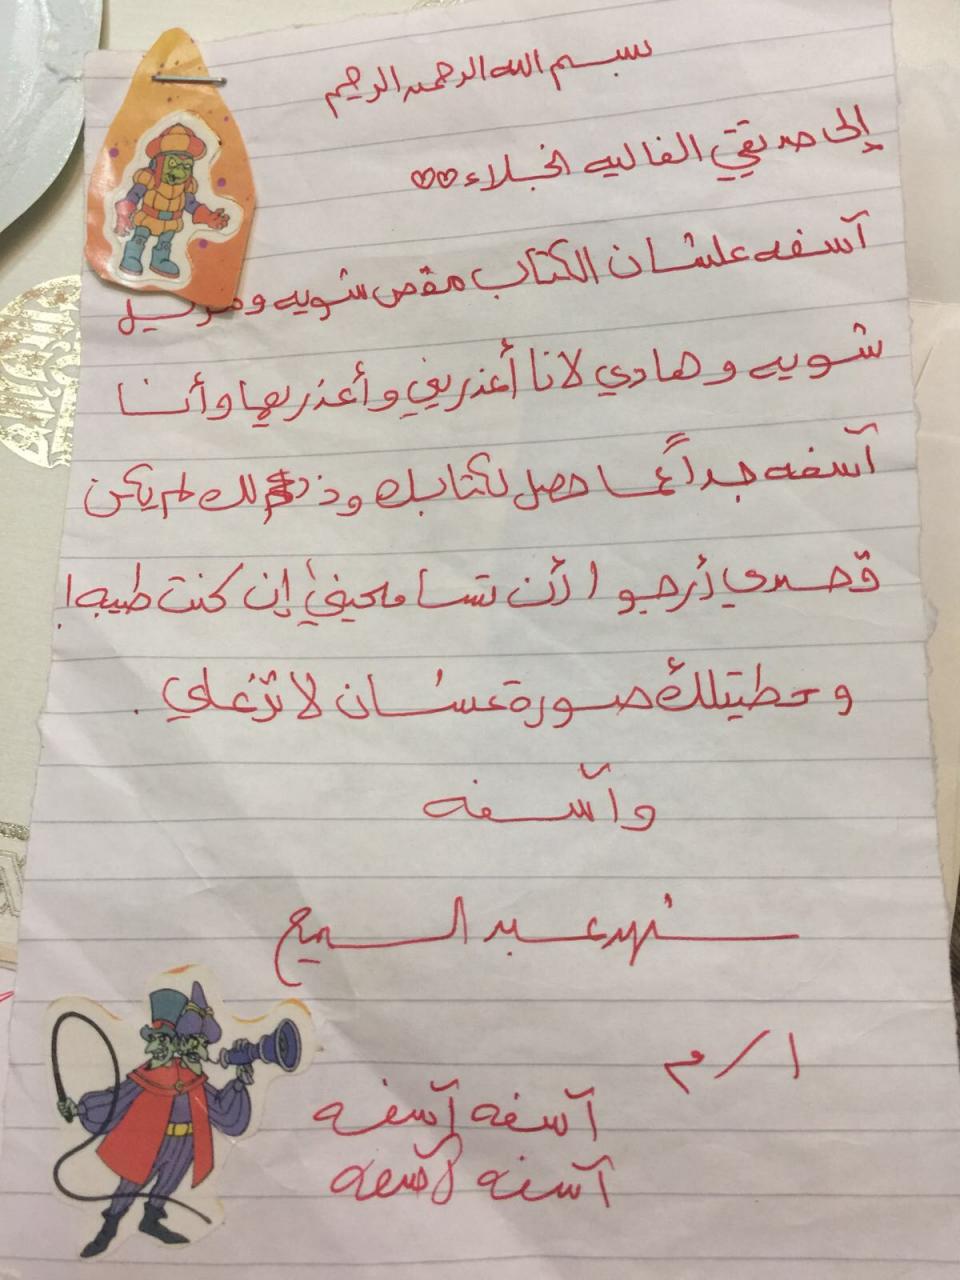 بسم الله الرحمن الرحيم
إلى صديقتي الغاليه الخبلاء
آسفه علشان الكتاب مقص شويه
شويه وهادي لانا أعذريني وأعذريها وأنا
آسفه جداً عما حصل لكتابك وذلك لم يكن
قصدي أرجوا أن تسامحيني إن كنت طيبه!
وحطيتلك صورة عشان لا تزعلي.
وآسفه
شهد عبد السميع
ا/م
آسفه آسفه
آسفه لآصفه